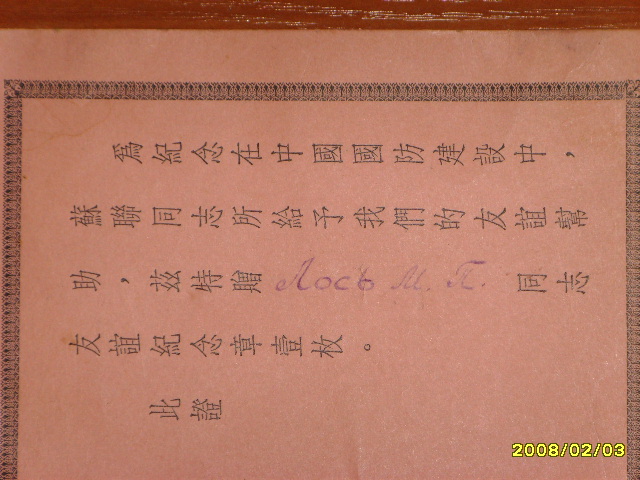 為紀念在中國國防建設中，
蘇聯同志所給予我們的友誼幫
助，茲特贈 Лось М. П. 同志
友誼紀念章壹枚。
此證
2008/02/03